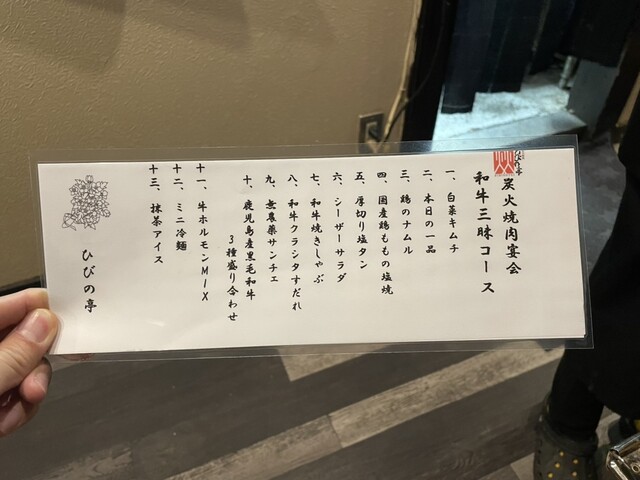 炭火焼肉宴会
和牛三昧コース
一、白菜キムチ
二、本日の一品
三、鶏のナムル
四、国産鶏ももの塩焼
五、厚切り塩タン
六、シーザーサラダ
七、和牛焼きしゃぶ
八、和牛クラシタすだれ
九、無農薬サンチェ
十、鹿児島産黒毛和牛
3種盛り合わせ
十一、牛ホルモンMIX
十二、ミニ冷麺
十三、抹茶アイス
ひびの亭